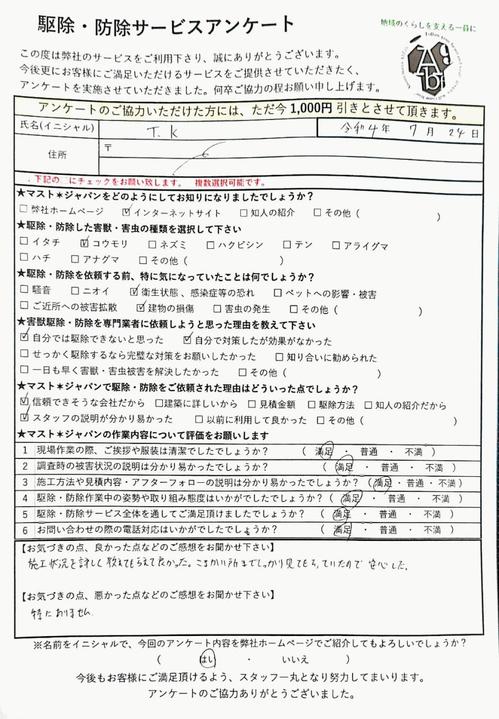 駆除・防除サービスアンケート
地域のくらしを支える一員に
この度は弊社のサービスをご利用下さり、誠にありがとうございます。
今後更にお客様にご満足いただけるサービスを提供させていただきたく、
アンケートを実施させていただきました。何卒ご協力の程お願い申し上げます。
アンケートのご協力いただけた方には、ただ今1,000円引きとさせて頂きます。
氏名(イニシャル) T.K 令和4年 7月 24日
住所 〒
下記の□にチェックをお願い致します。 複数選択可能です。
★マスト＊ジャパンをどのようにしてお知りになりましたでしょうか？
□弊社ホームページ ☑インターネットサイト □知人の紹介 □その他（ ）
★駆除・防除した害獣・害虫の種類を選択して下さい
□イタチ ☑コウモリ □ネズミ □ハクビシン □テン □アライグマ
□ハチ □アナグマ □その他（ ）
★駆除・防除を依頼する前、特に気になっていたことは何でしょうか？
□騒音 □ニオイ ☑衛生状態、感染症等の恐れ □ペットへの影響・被害
□ご近所への被害拡散 ☑建物の損傷 □害虫の発生 □その他（ ）
★害獣駆除・防除を専門業者に依頼しようと思った理由を教えて下さい
☑自分では駆除できないと思った ☑自分で対策したが効果がなかった
□せっかく駆除するなら完璧な対策をお願いしたかった □知り合いに勧められた
□一日も早く害獣・害虫被害を解決したかった □その他（ ）
★マスト＊ジャパンで駆除・防除をご依頼された理由はどういった点でしょうか？
☑信頼できそうな会社だから □建築に詳しいから □見積金額 □駆除方法 □知人の紹介だから
☑スタッフの説明が分かり易かった □以前に利用して良かった □その他（ ）
★マスト＊ジャパンの作業内容について評価をお願いします
1 現場作業の際、ご挨拶や服装は清潔でしたでしょうか？ （ 満足 ・ 普通 ・ 不満 ）
2 調査時の被害状況の説明は分かり易かったでしょうか？ （ 満足 ・ 普通 ・ 不満 ）
3 施工方法や見積内容・アフターフォローの説明は分かり易かったでしょうか？（ 満足 ・ 普通 ・ 不満 ）
4 駆除・防除作業中の姿勢や取り組み態度はいかがでしたでしょうか？（ 満足 ・ 普通 ・ 不満 ）
5 駆除・防除サービス全体を通してご満足頂けましたでしょうか？ （ 満足 ・ 普通 ・ 不満 ）
6 お問い合わせの際の電話対応はいかがでしたでしょうか？ （ 満足 ・ 普通 ・ 不満 ）
【お気づきの点、良かった点などのご感想をお聞かせ下さい】
施工状況を詳しく教えてもらえて良かった。こまかい所までしっかり見てもらっていたので安心した。
【お気づきの点、悪かった点などのご感想をお聞かせ下さい】
特にありません
※名前をイニシャルで、今回のアンケート内容を弊社ホームページでご紹介してもよろしいでしょうか？
（ はい ・ いいえ ）
今後もお客様にご満足頂けるよう、スタッフ一丸となり努力してまいります。
アンケートのご協力ありがとうございました。